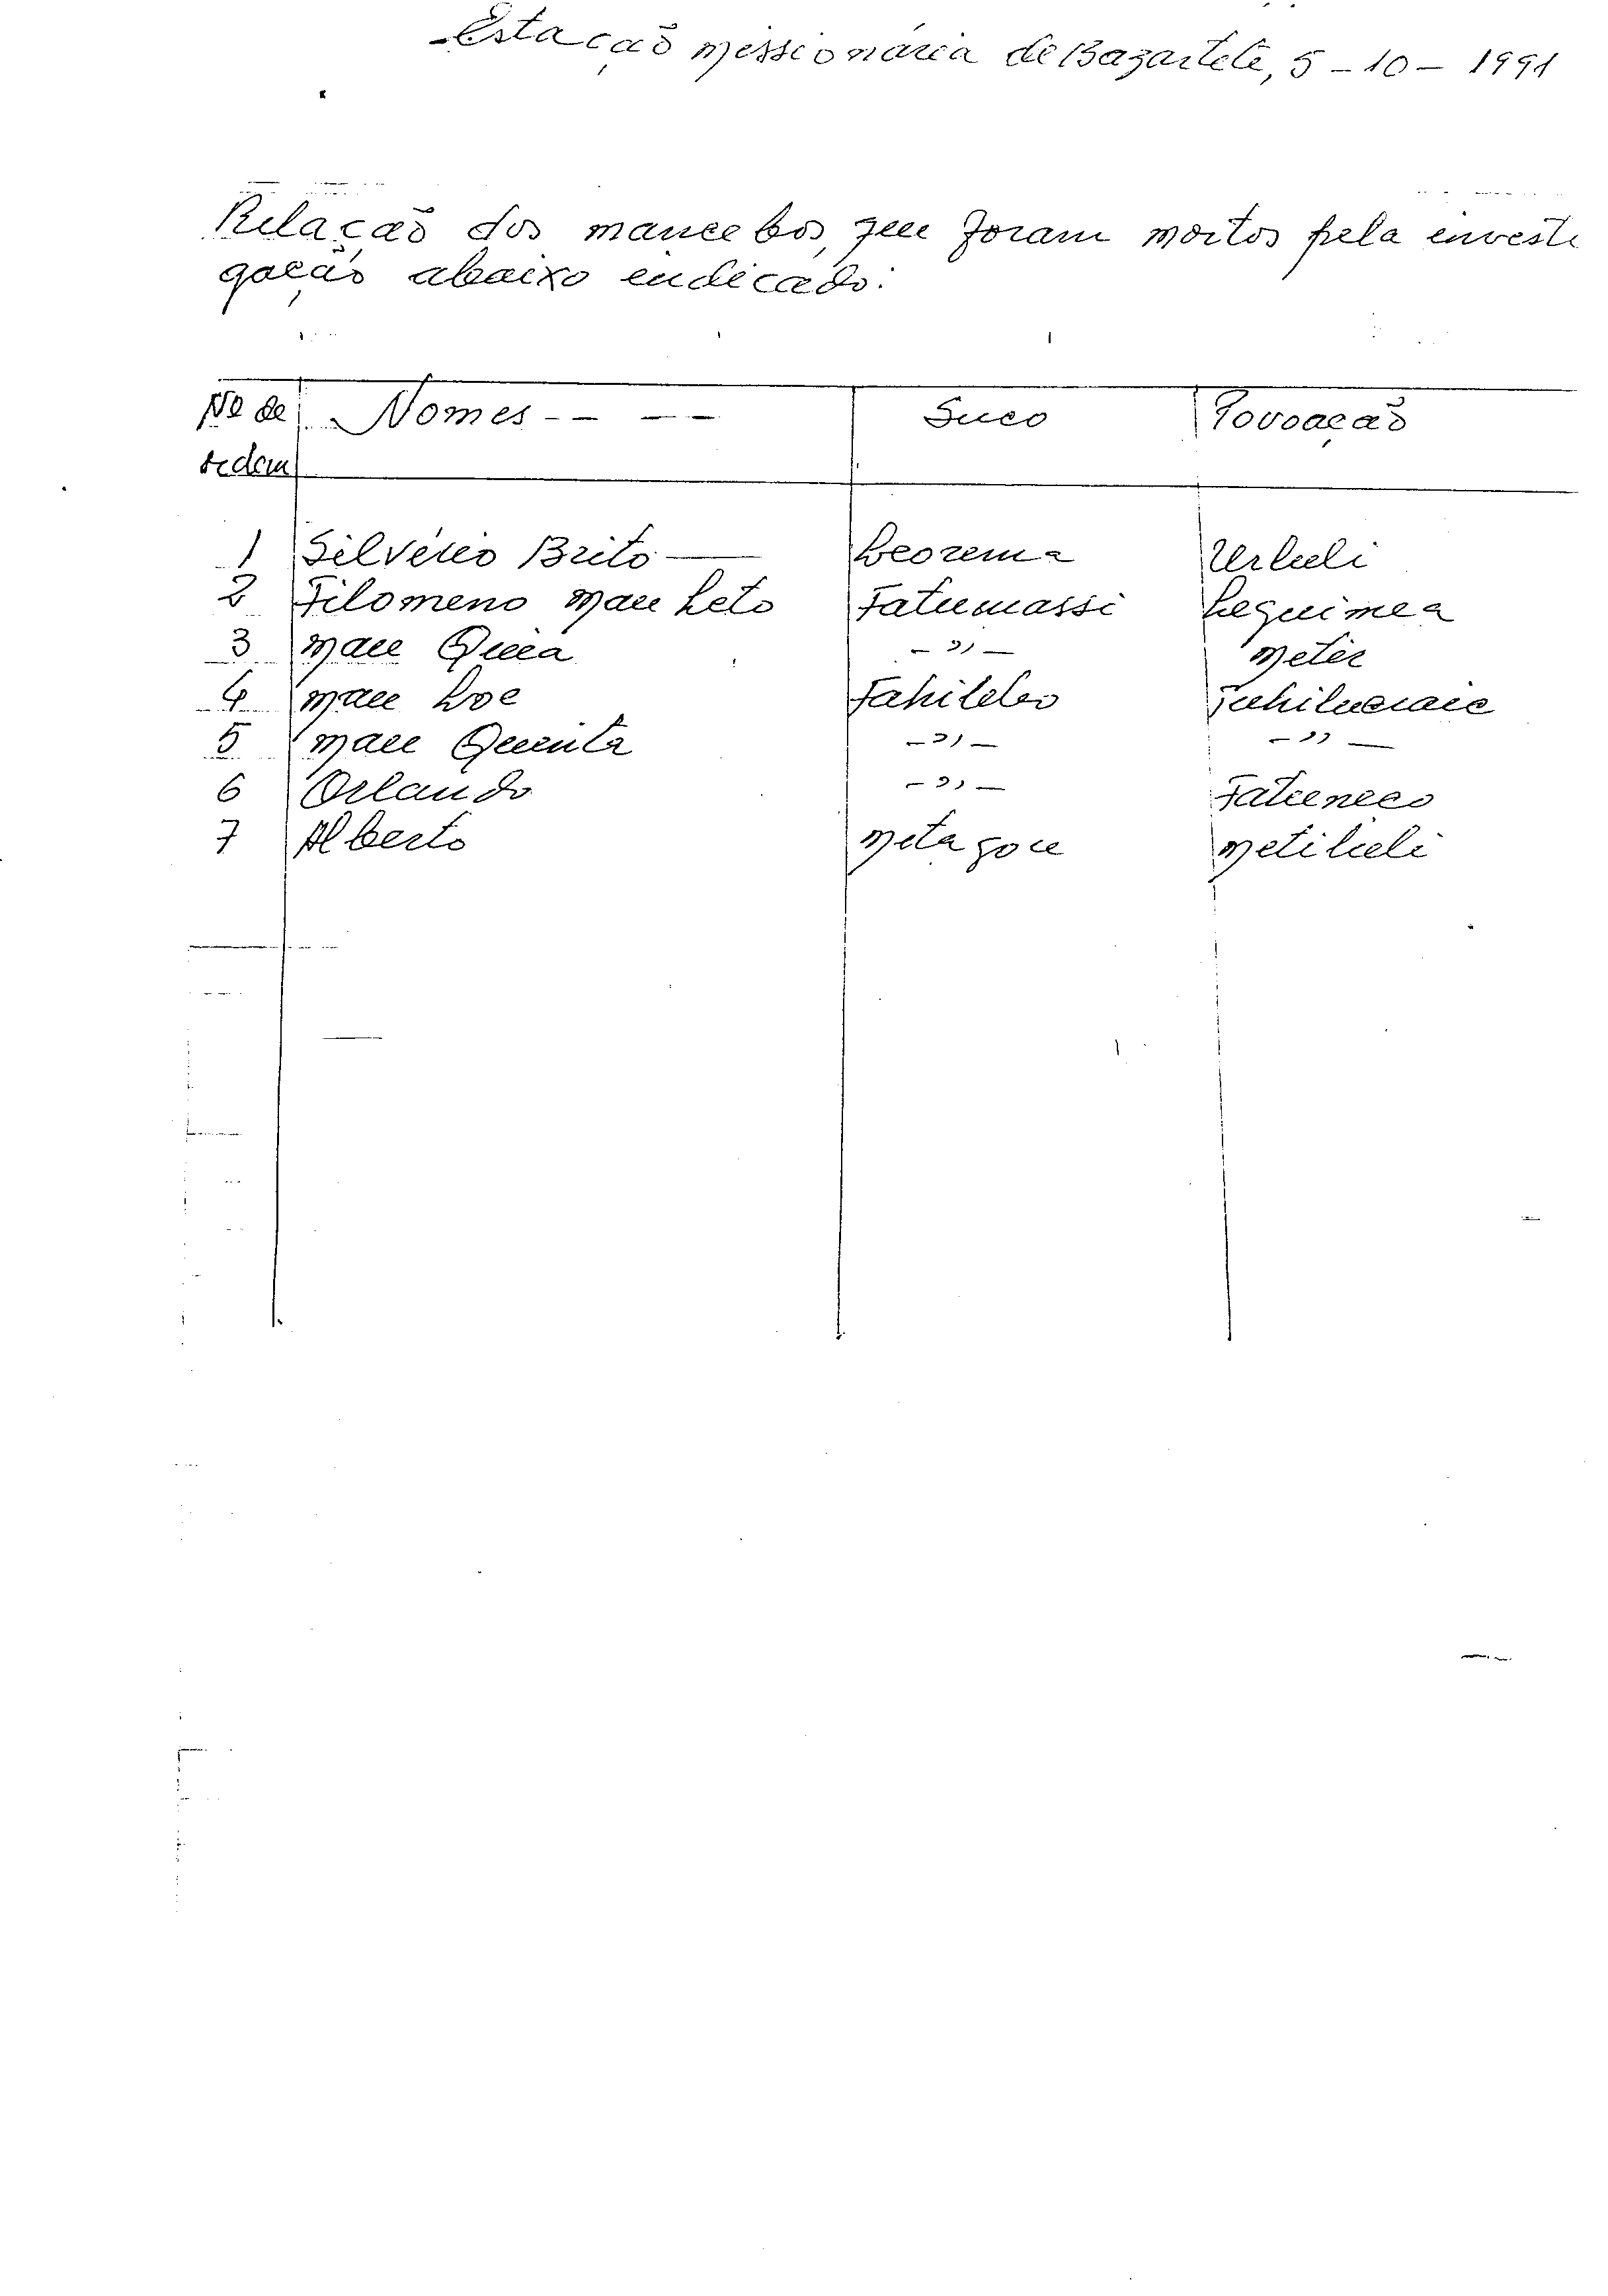 Estação Missionária de Bazartete, 5-10-1991
Relação dos mancebos que foram mortos pela investi
gação abaixo indicado:
Nº de Nomes - - - - Suco Povoação
ordem
1 Silvério Brito — Leorema Urluli
2 Filomeno Mau Leto Fatumassi Lequimea
3 Mau Quea -"- Metir
4 Mau Loe Fahilebo
5 Mau Quinta -"- -"-
6 Orlando -"-
7 Alberto Metagou Metiluli